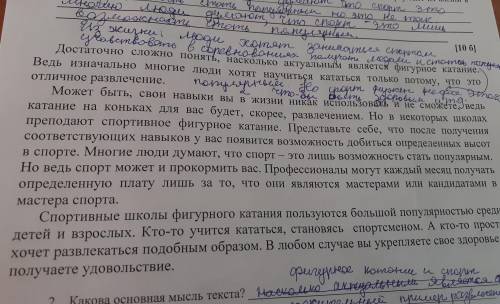 что спорт это
стать популярным но это не так
люди думают что спорт - это лишь
возможность стать популярным.
Из жизни: люди хотят заниматься спортом
[10 б]
участвовать в соревнованиях
Достаточно сложно понять, насколько актуальным является фигурное катание.
Ведь изначально многие люди хотят научиться кататься только потому, что это
отличное развлечение.
популярным
спорт нужен не для этого
Может быть, свои навыки вы в жизни никак использовать не сможете, ведь
катание на коньках для вас будет, скорее, развлечением. Но в некоторых школах
преподают спортивное фигурное катание. Представьте себе, что после получения
соответствующих навыков у вас появится возможность добиться определенных высот
в спорте. Многие люди думают, что спорт – это лишь возможность стать популярным.
Но ведь спорт может и прокормить вас. Профессионалы могут каждый месяц получать
определенную плату лишь за то, что они являются мастерами или кандидатами в
мастера спорта.
Спортивные школы фигурного катания пользуются большой популярностью среди
детей и взрослых. Кто-то учится кататься, становясь спортсменом. А кто-то просто
хочет развлекаться подобным образом. В любом случае вы укрепляете свое здоровье
получаете удовольствие.
фигурное катание и спорт
2. Какова основная мысль текста? насколько актуальным является